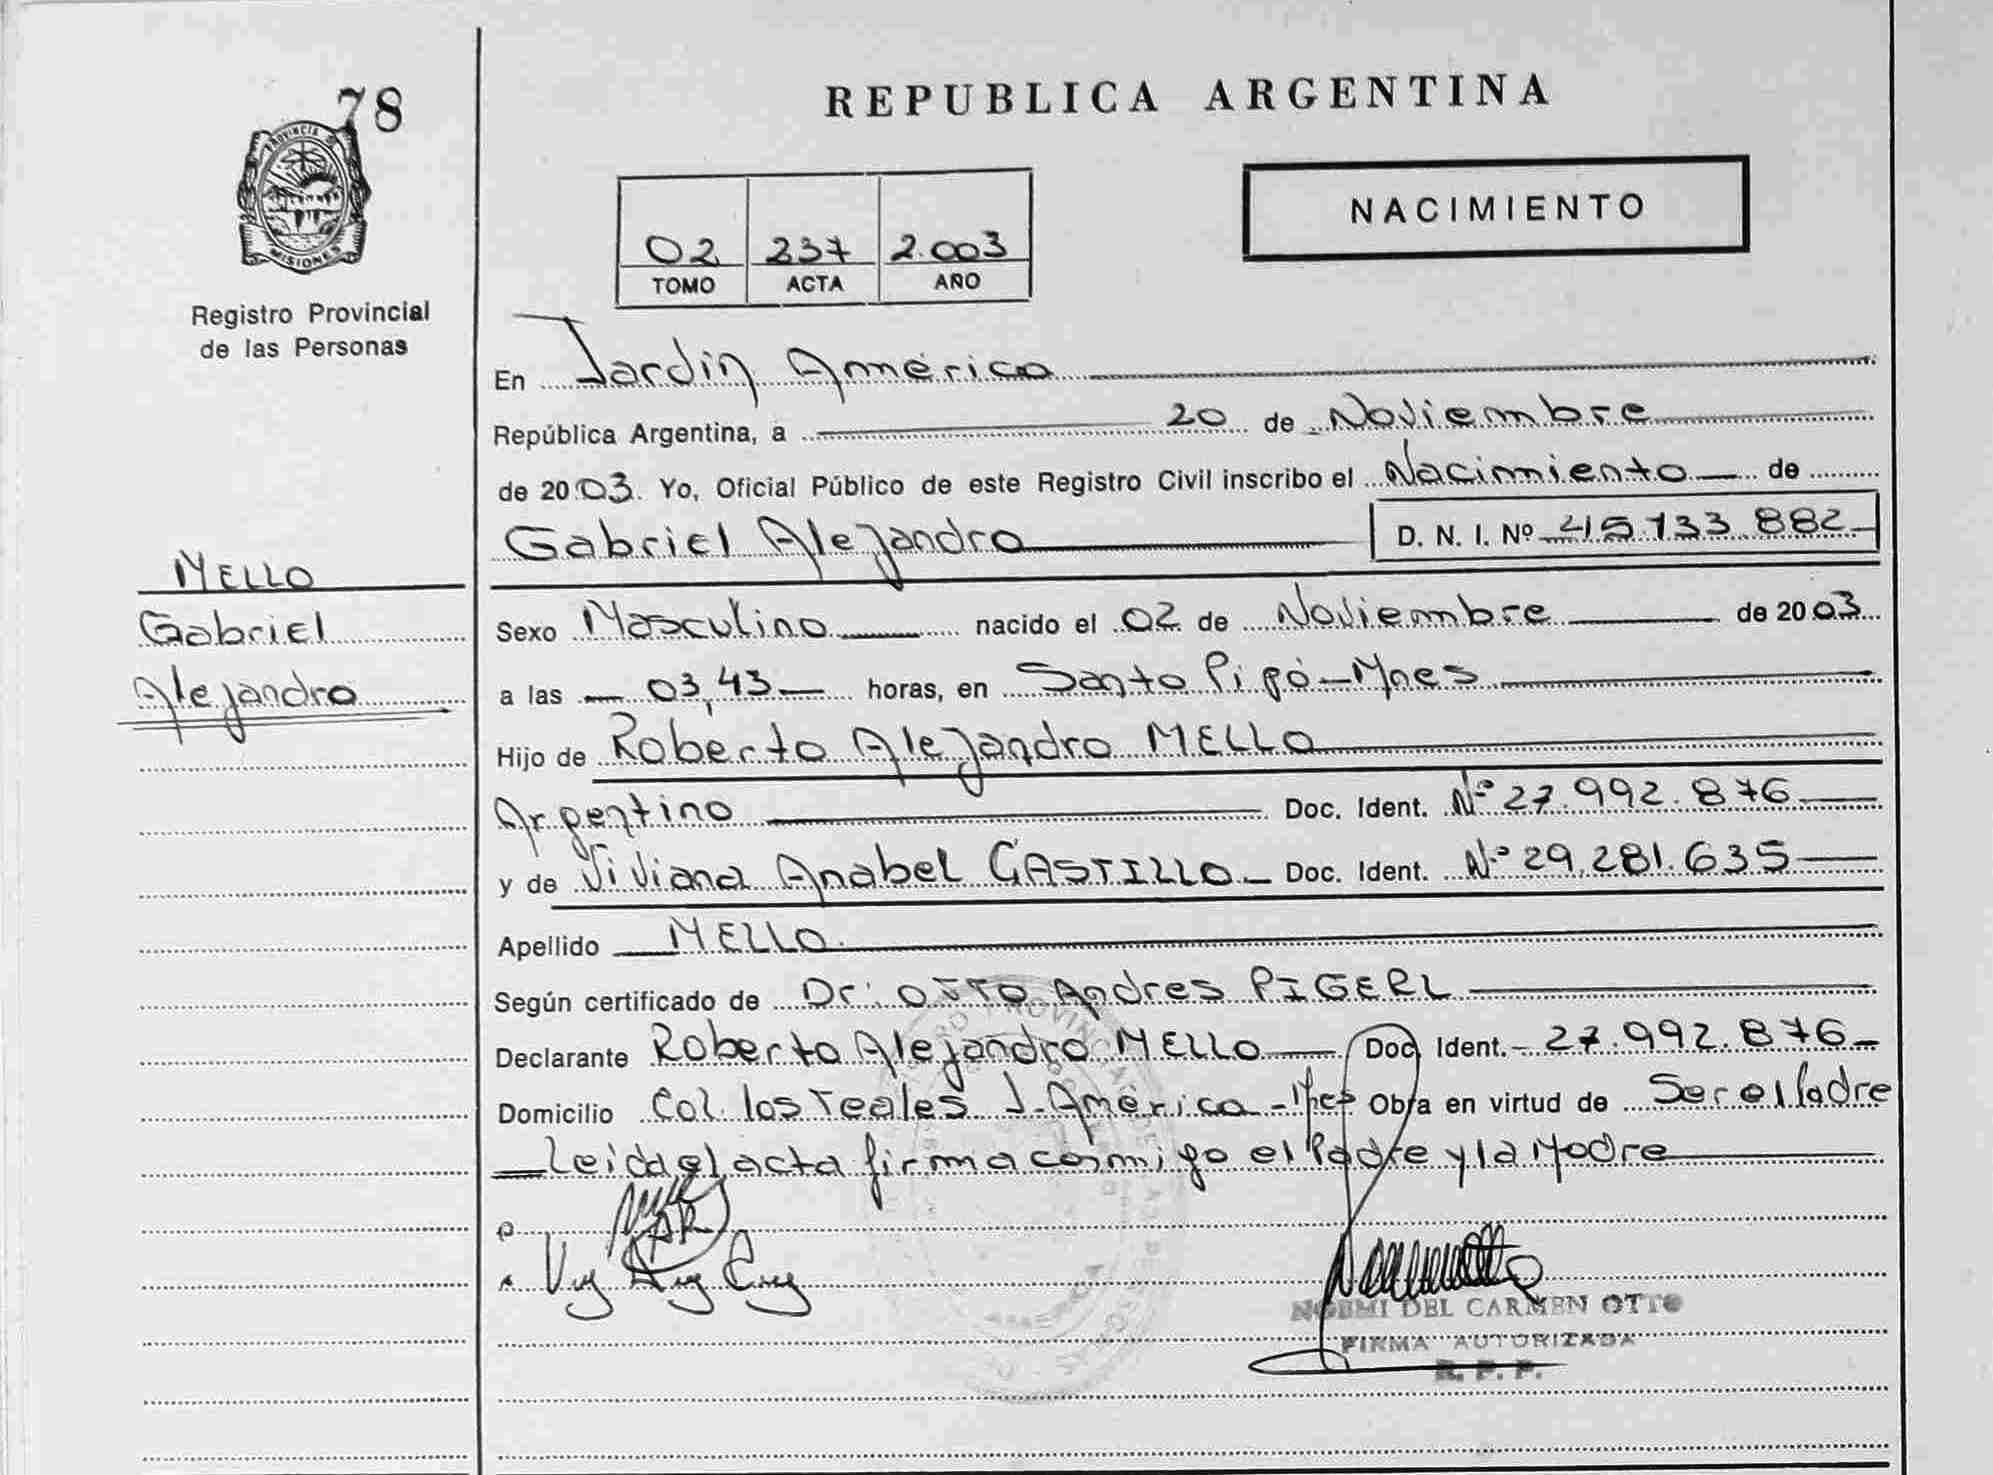 78
PROVINCIA DE
MISIONES
Registro Provincial
de las Personas
MELLO
Gabriel
Alejandro
REPUBLICA ARGENTINA
02 237 2.003
TOMO ACTA AÑO
NACIMIENTO
En Jardín América
República Argentina, a 20 de Noviembre
de 2003. Yo, Oficial Público de este Registro Civil inscribo el Nacimiento de
Gabriel Alejandro D. N. I. Nº 45.133.882
Sexo Masculino nacido el 02 de Noviembre de 2003
a las 03,43 horas, en Santo Pipó-Mnes
Hijo de Roberto Alejandro MELLO
Argentino Doc. Ident. Nº 27.992.876
y de Viviana Anabel CASTILLO Doc. Ident. Nº 29.281.635
Apellido MELLO
Según certificado de Dr: OTTO Andres PIGERL
Declarante Roberto Alejandro MELLO Doc. Ident. 27.992.876
Domicilio Col. los Teales J. América - Mnes Obra en virtud de Ser el Padre
Leida el acta firma conmigo el Padre y la Madre
NOEMI DEL CARMEN OTTO
FIRMA AUTORIZADA
R. P. P.